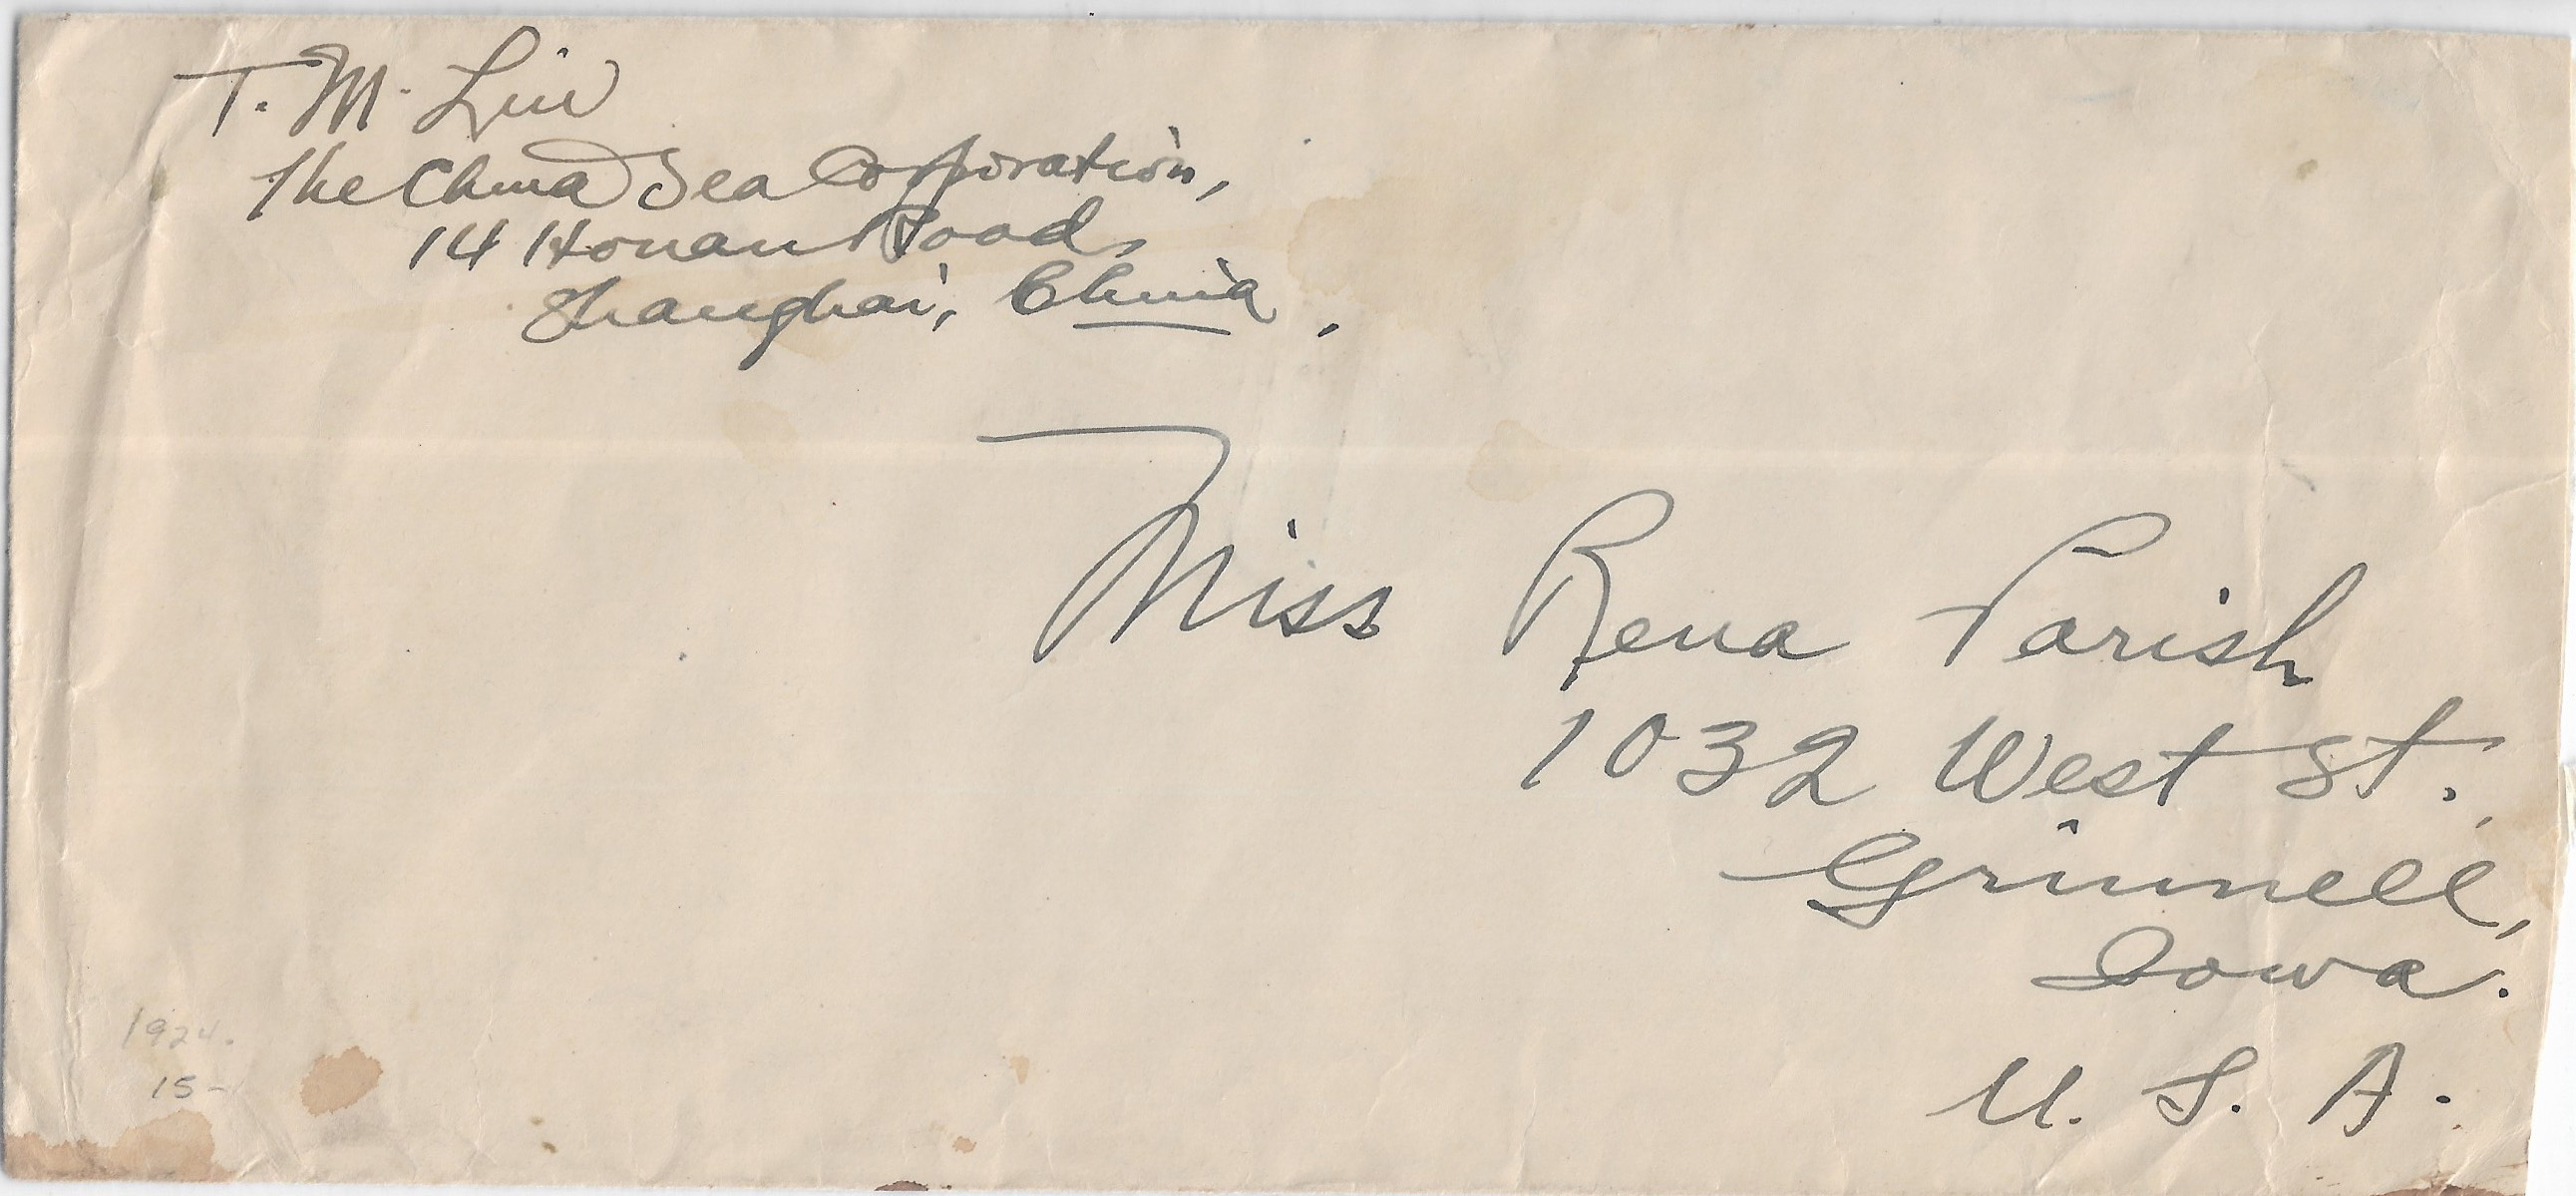 T. M. Liu
The China Sea Corporation,
14 Honan Road,
Shanghai, China,
Miss Rena Parish
1032 West St.,
Grinnell,
Iowa.
U. S. A.
1924.
15-